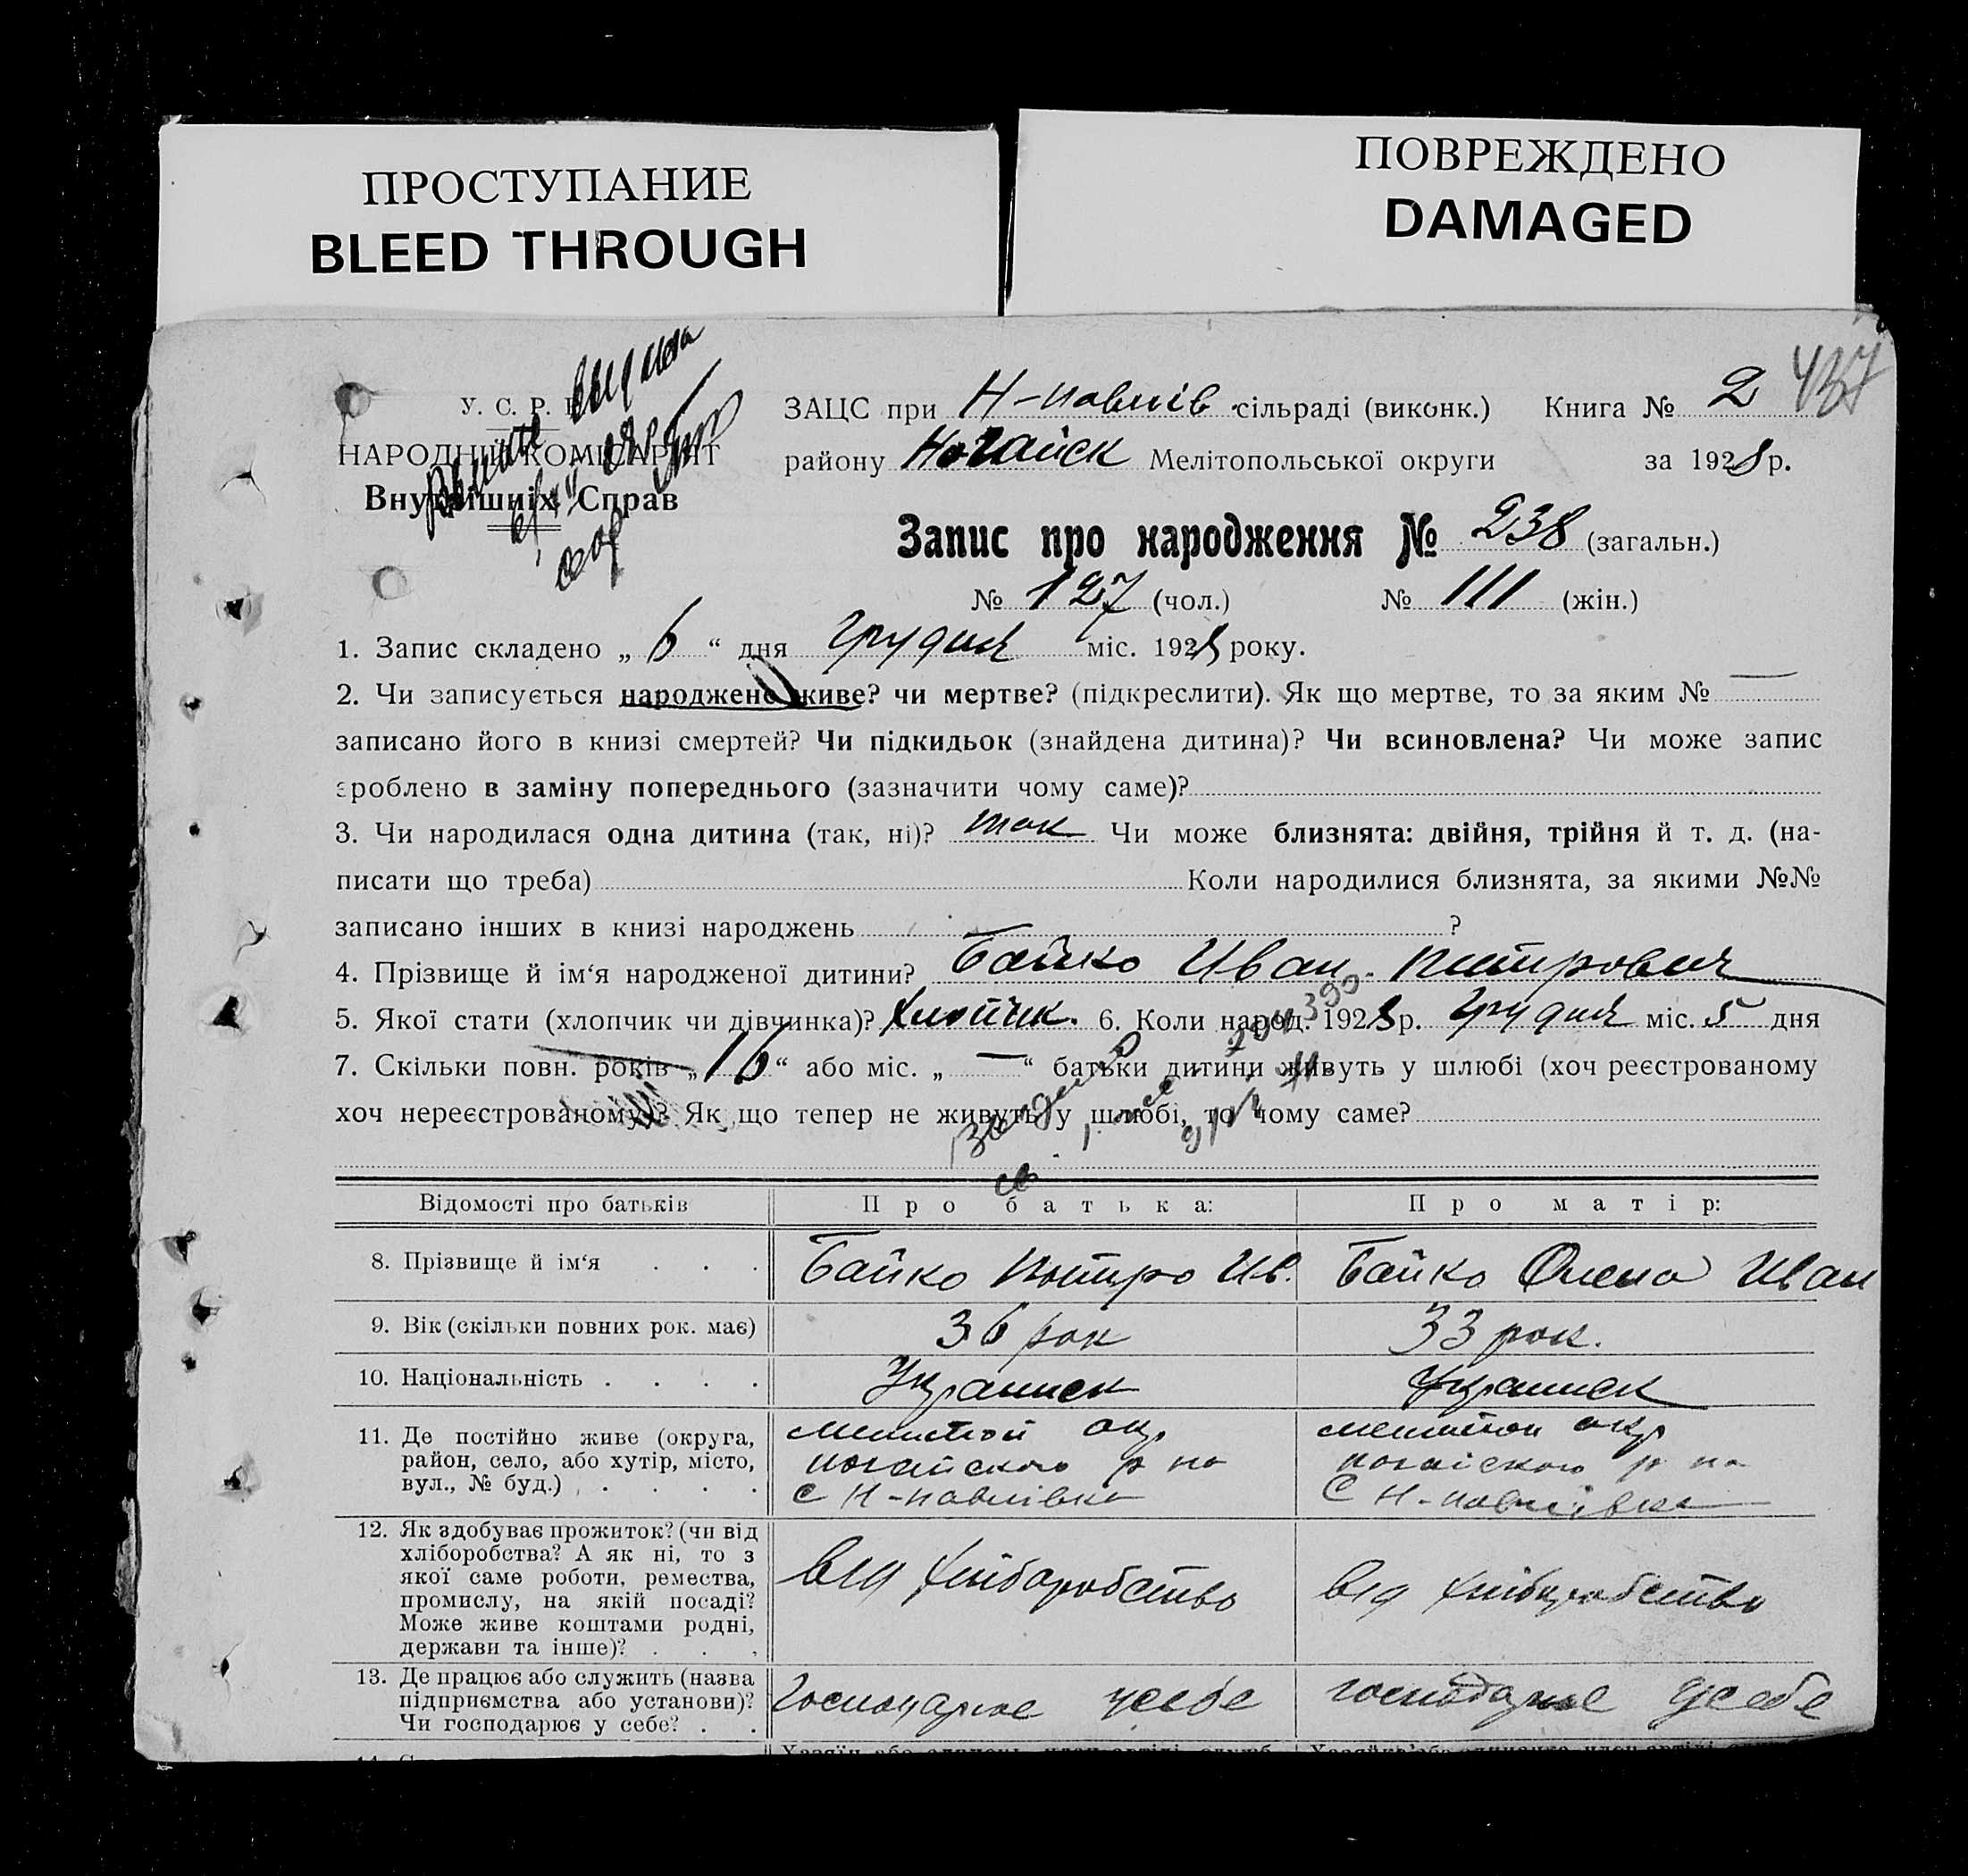 ПРОСТУПАНИЕ
BLEED THROUGH
ПОВРЕЖДЕНО
DAMAGED
У. С. Р. Р.
НАРОДНІЙ КОМІСАРІЯТ
Внутрішніх Справ
ЗАЦС при Н-павлів сільраді (виконк.) Книга № 2
437
району Ногайск Мелітопольської округи за 1928 р.
Запис про народження № 238 (загальн.)
№ 127 (чол.) № 111 (жін.)
1. Запис складено „ 6 “ дня Грудня міс. 1928 року.
2. Чи записується народжене живе? чи мертве? (підкреслити). Як що мертве, то за яким № —
записано його в книзі смертей? Чи підкидьок (знайдена дитина)? Чи всиновлена? Чи може запис
зроблено в заміну попереднього (зазначити чому саме)?
3. Чи народилася одна дитина (так, ні)? так Чи може близнята: двійня, трійня й т. д. (на-
писати що треба) Коли народилися близнята, за якими №№
записано інших в книзі народжень ?
4. Прізвище й ім‘я народженої дитини? Байко Иван Питрович
5. Якої стати (хлопчик чи дівчинка)? Хлопчик. 6. Коли народ. 1928 р. Грудня міс. 5 дня
7. Скільки повн. років „ 16 “ або міс. „ — “ батьки дитини живуть у шлюбі (хоч реєстрованому
хоч нереєстрованому)? Як що тепер не живуть у шлюбі, то чому саме?
Відомості про батьків Про батька: Про матір:
8. Прізвище й ім‘я . . . Байко Питро Ив. Байко Олена Иван
9. Вік (скільки повних рок. має) 36 рок 33 рок.
10. Національність . . . . Украинск Украинск
11. Де постійно живе (округа,
район, село, або хутір, місто,
вул., № буд.) . . . . .
мелитоп окр
ногайского р на
с Н-павлівка
мелитоп окр
ногайского р на
с Н-павлівка
12. Як здобуває прожиток? (чи від
хліборобства? А як ні, то з
якої саме роботи, ремества,
промислу, на якій посаді?
Може живе коштами родні,
держави та інше)? . . .
від хліборобство
від хліборобство
13. Де працює або служить (назва
підприємства або установи)?
Чи господарює у себе? . .
Господарює усебе
господарює усебе